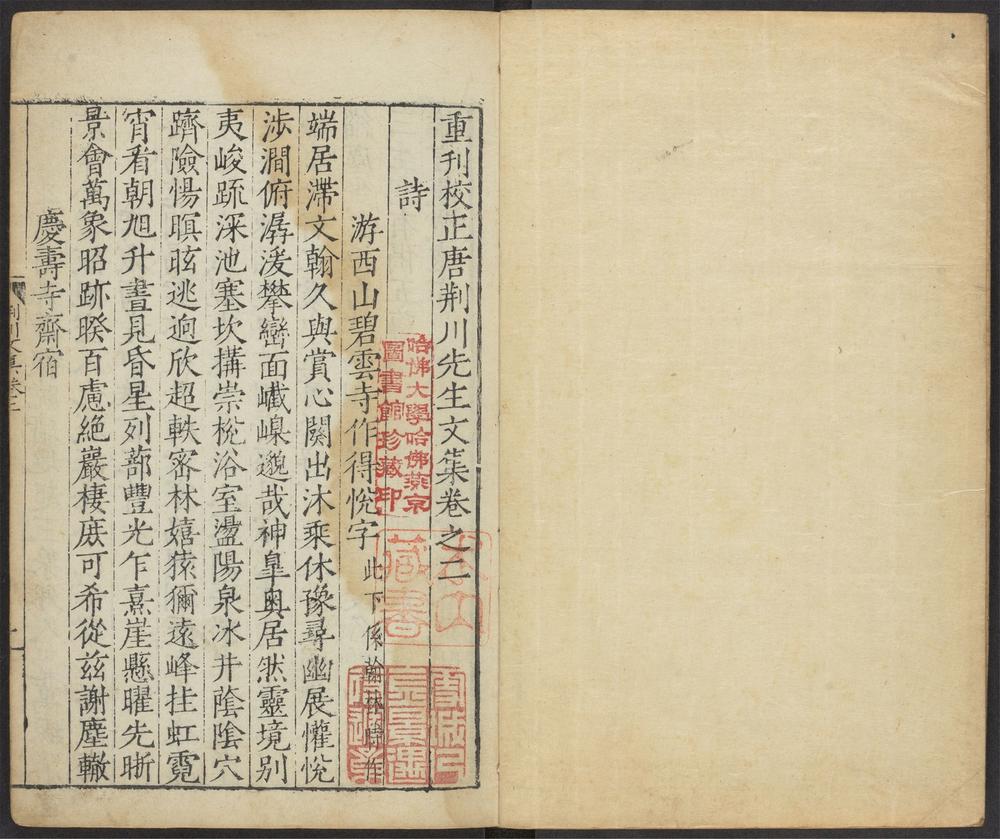 重刊校正唐荆川先生文集卷之二
詩
游西山碧雲寺作得悅字 此下係翰林時作
端居滯文翰久與賞心闋出沐乘休豫尋幽展懽悅
涉澗俯潺湲攀巒面巀嵲邈哉神臯奥居然靈境别
夷峻疏深池塞坎搆崇梲浴室盪陽泉冰井陰陰穴
躋險惕瞑眩逃逈欣超軼密林嬉猿獮遠峰挂虹霓
宵看朝旭升晝見昏星列蔀豐光乍熹崖懸曜先晣
景會萬象昭跡暌百慮絶巖棲庶可希從兹謝塵轍
慶壽寺齋宿
哈佛大學哈佛燕京
圖書館珍藏印
藏書